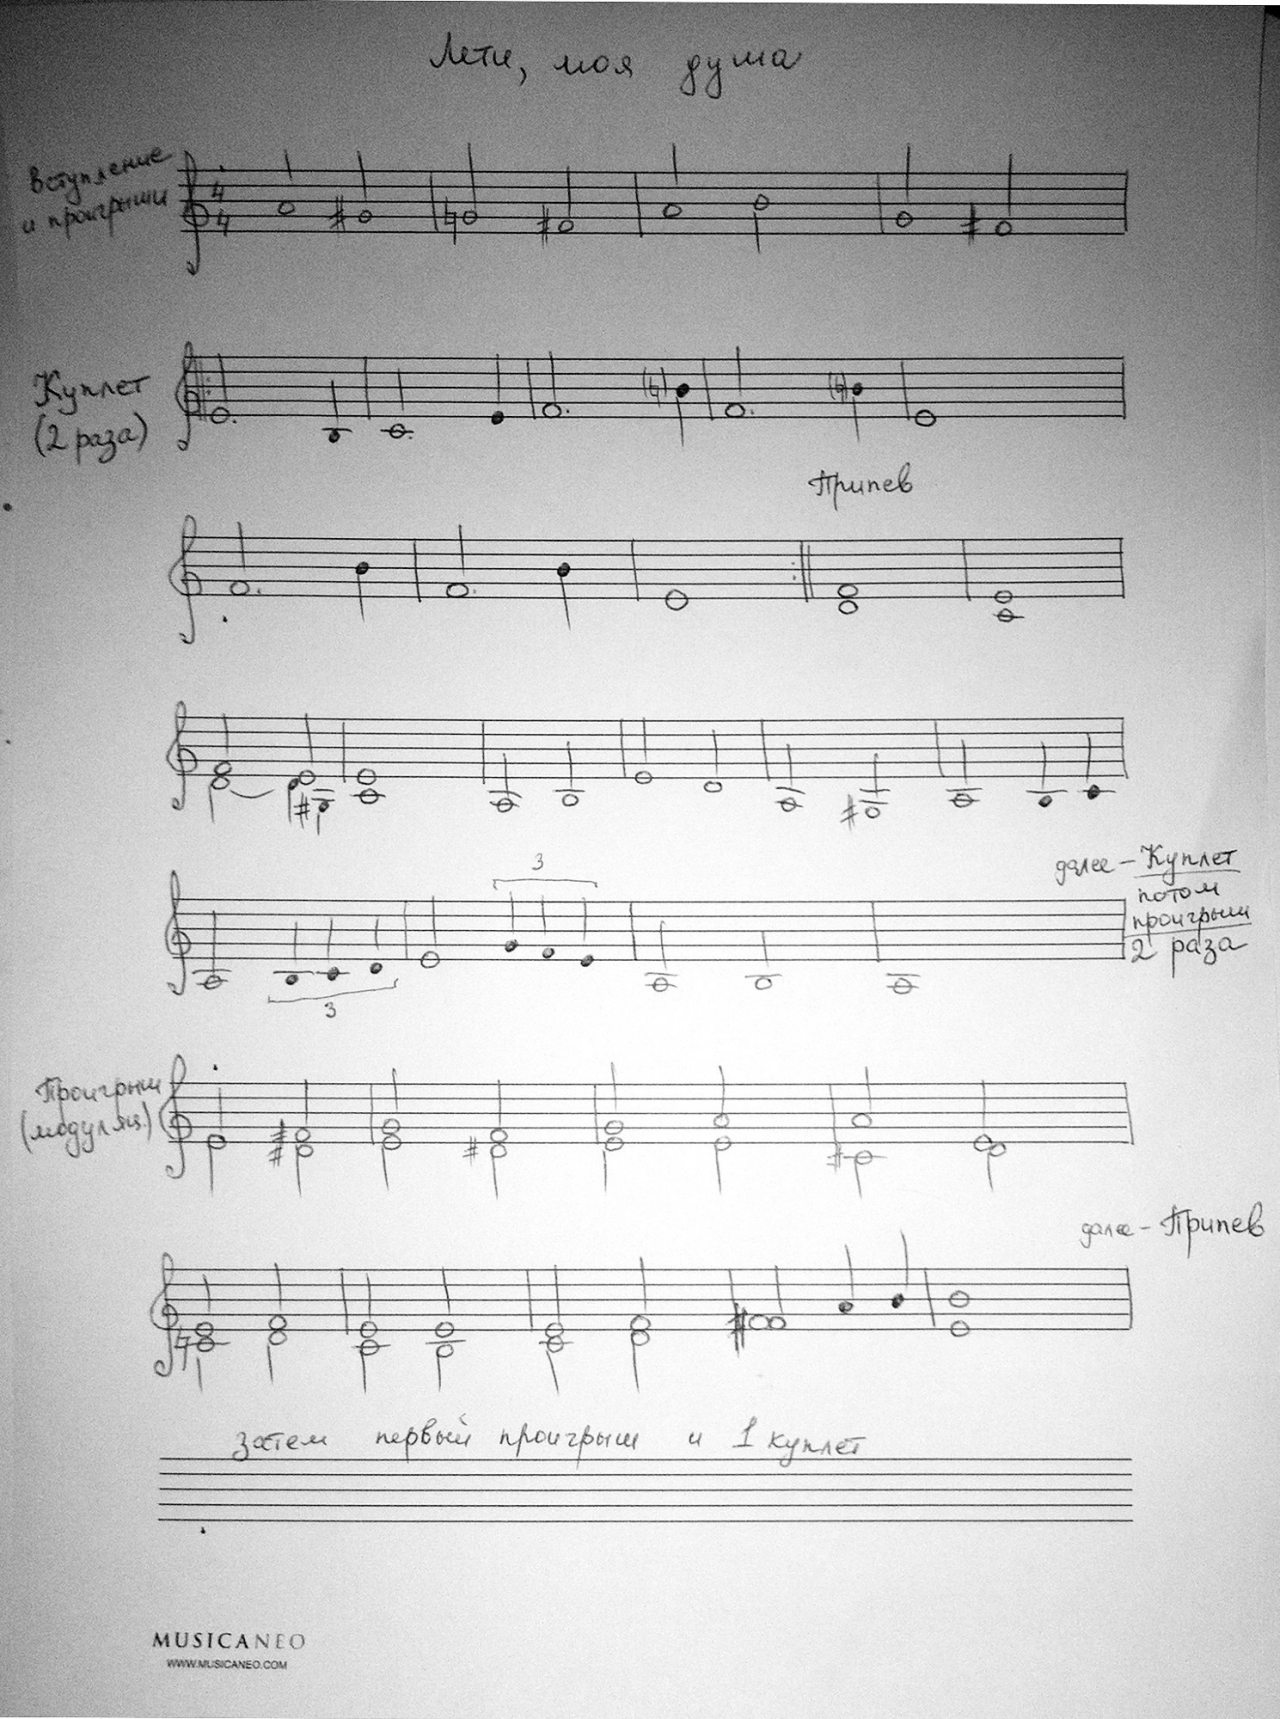 Лети, моя душа
Вступление
и проигрыши
4
4
Куплет
(2 раза)
Припев
3
3
далее - Куплет
потом
проигрыш
2 раза
Проигрыш
(модуляц.)
далее - Припев
затем первый проигрыш и 1 куплет
MUSICANEO
WWW.MUSICANEO.COM